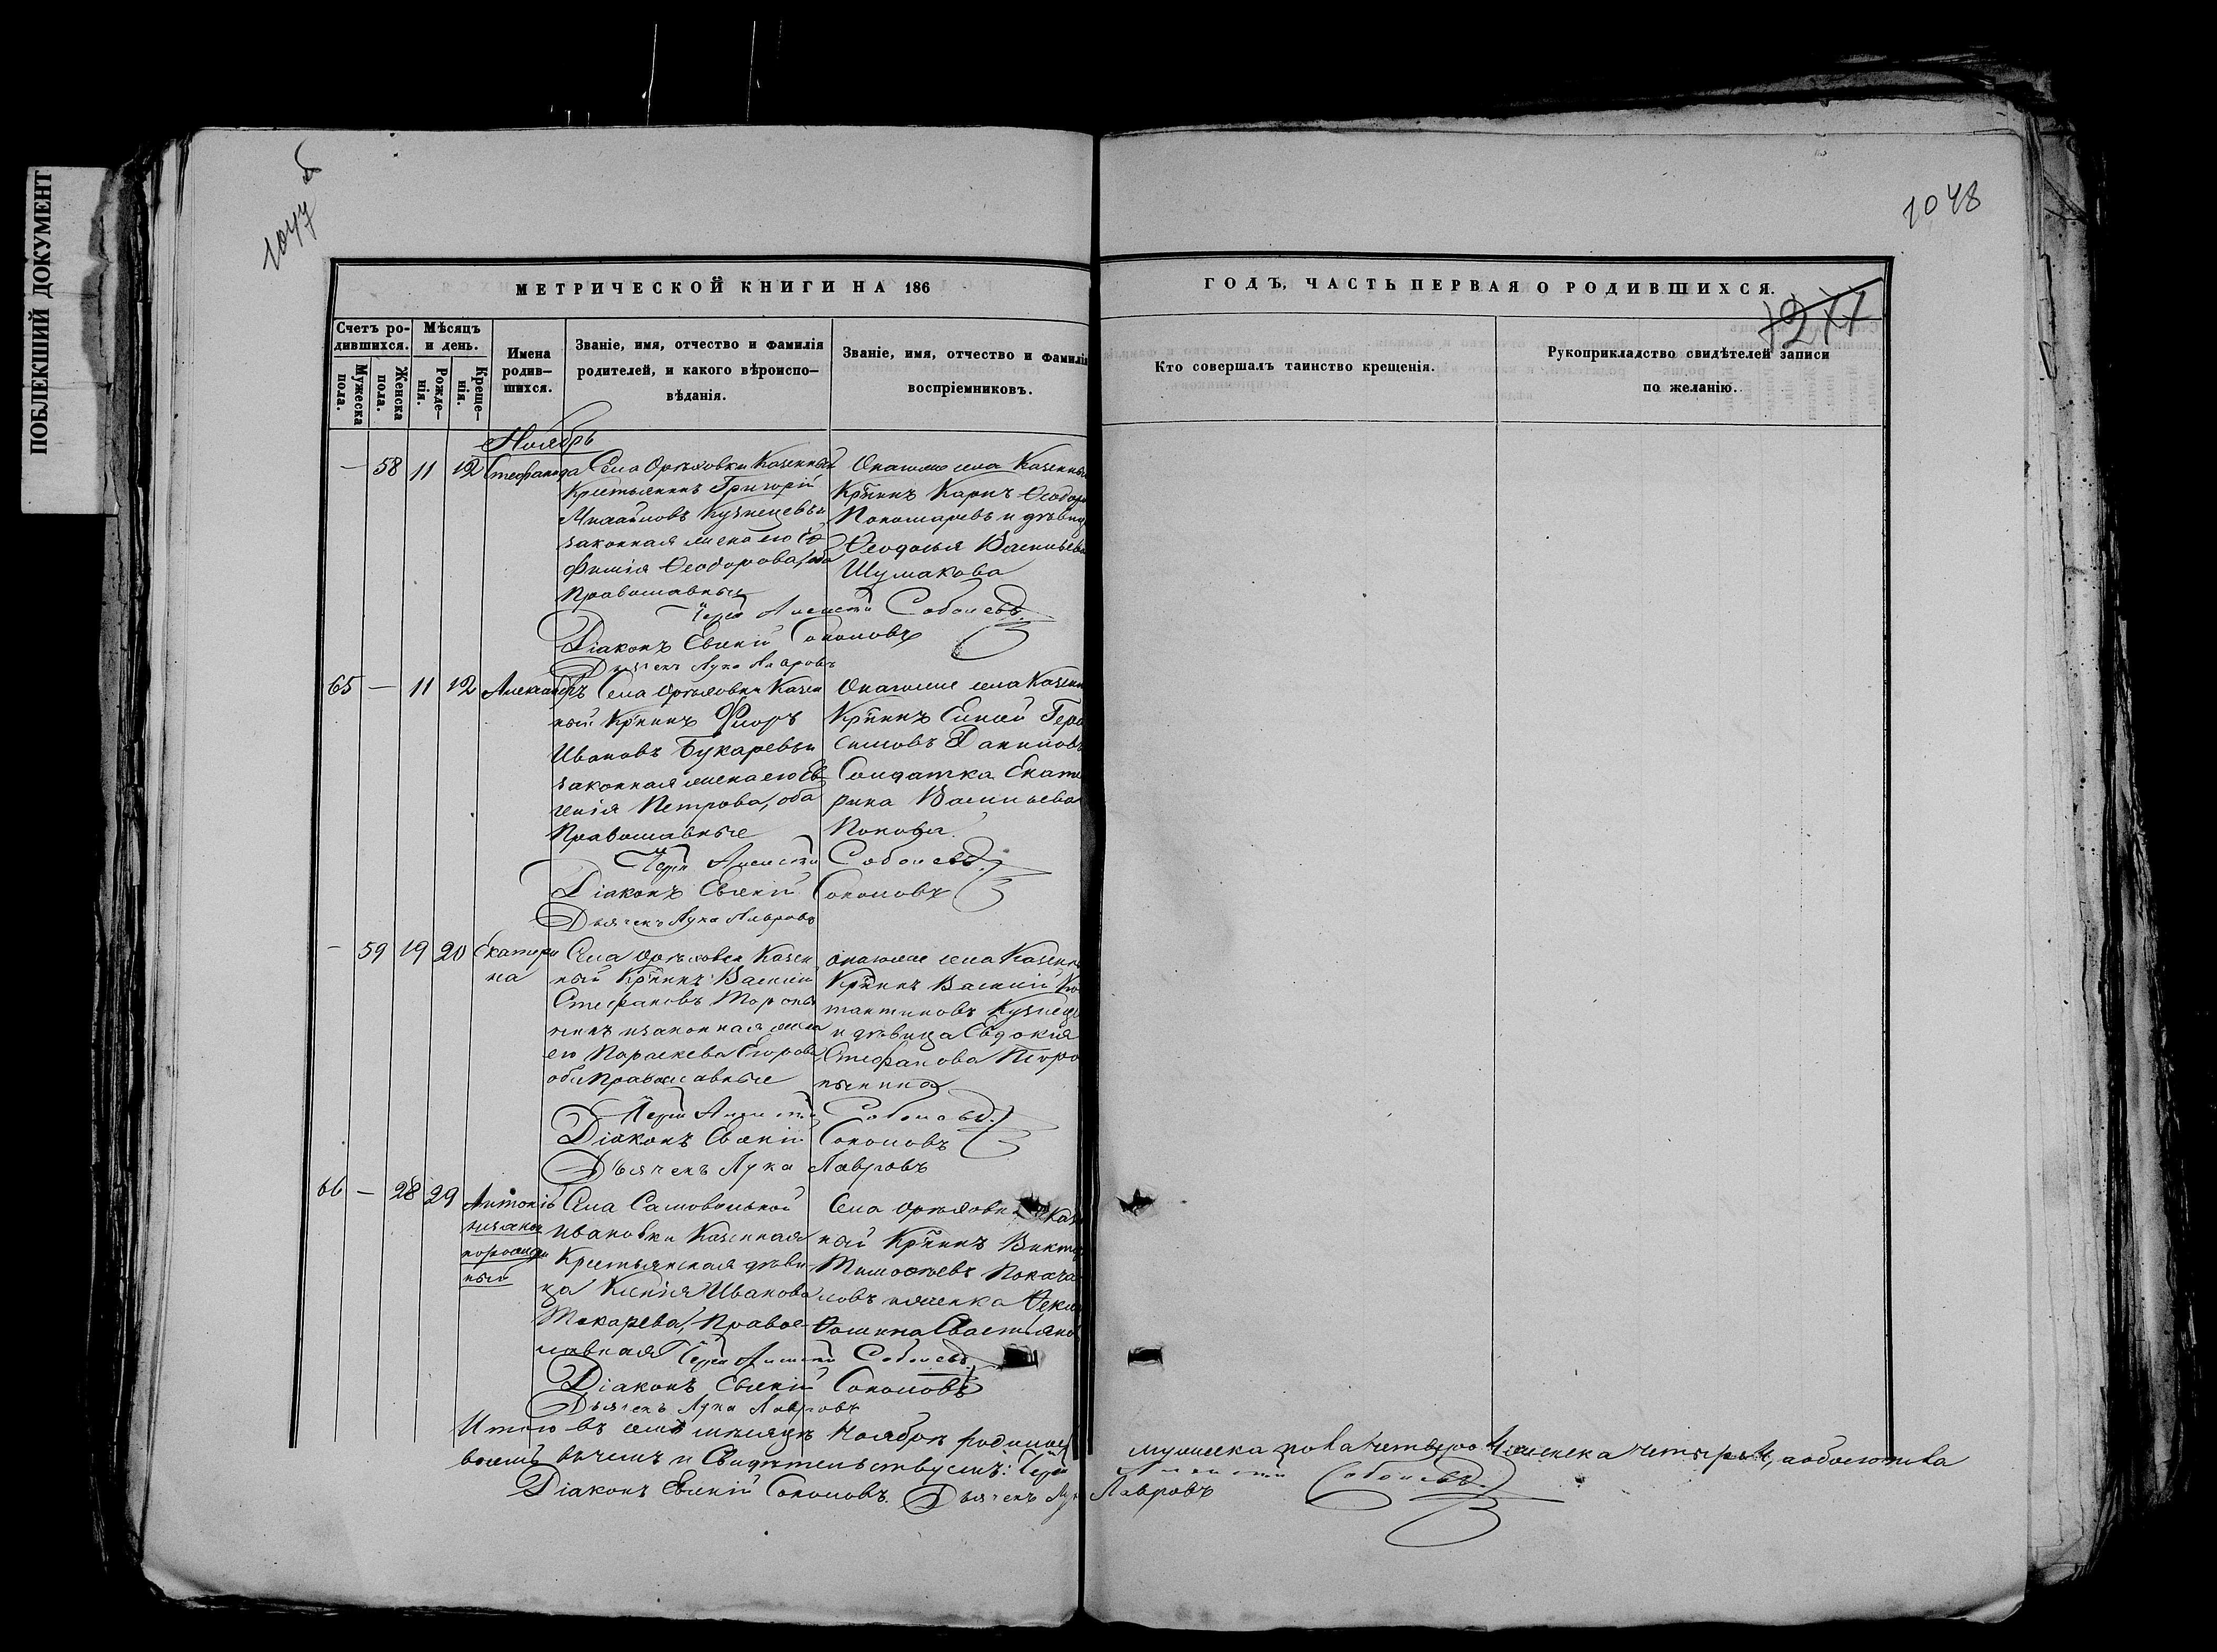 ПОБЛЕКШИЙ ДОКУМЕНТ
1047 б
1048
МЕТРИЧЕСКОЙ КНИГИ НА 186
ГОДЪ, ЧАСТЬ ПЕРВАЯ О РОДИВШИХСЯ.
1271
Счетъ ро-
дившихся.
Мужеска
пола.
Женска
пола.
Мѣсяцъ
и день.
Рожде-
нія.
Креще-
нія.
Имена
родив-
шихся.
Званіе, имя, отчество и фамилія
родителей, и какого вѣроиспо-
вѣданія.
Званіе, имя, отчество и фамилія
воспріемниковъ.
Кто совершалъ таинство крещенія.
Рукоприкладство свидѣтелей записи
по желанію.
Ноябрь
— 58 11 12 Стефанида
Села Орѣховки Казенный
Крестьянинъ Григорій
Михайловъ Кузнецевъ и
законная жена его Ев
фимія Ѳеодорова, оба
Православные
Казенный
Кр̃нинъ Карпъ Ѳеодоро
Пономаревъ и дѣвица
Ѳеодосья Васильева
Шумакова
Іерей Соболевъ
Діаконъ Евсений Соколовъ
Дьячекъ Лука Лавровъ
65 — 11 12 Александръ
Села Орѣховки Казен
ный Кр̃нинъ Флоръ
Ивановъ Букаревъ и
законная жена его Ев
генія Петрова, оба
Православные
села Казен
Кр̃нинъ Гера
симовъ Даниловъ
Солдатка Екате
рина Васильева
Попова.
Іерей Соболевъ
Діаконъ Соколовъ
Дьячекъ Лука Лавровъ
— 59 19 20 Екатери
на
Села Орѣховки Казен
ный Кр̃нинъ Василий
Стефановъ
и законная жена
его Параскева Егорова
оба Православные
села Казенны
Кр̃нинъ Василий Конс
тантиновъ Кузнецо
и дѣвица Евдокия
Стефанова
Іерей Соболевъ
Діаконъ Соколовъ
Дьячекъ Лука Лавровъ
66 — 28 29 Антоній
незакон
норожден
ный
Села Самовольной
Ивановки Казенная
Крестьянская дѣви
ца Ксенія Иванова
Токарева, Правос
лавная
Села Орѣховки Казен
ный Кр̃нинъ Викто
Тимофеевъ
Ѳекла
Ѳомина
Іерей Соболевъ
Діаконъ Соколовъ
Дьячекъ Лука Лавровъ
Итого въ семъ мѣсяцѣ Ноябрѣ родилось мужеска пола четверо женска четыре, а обоего пола
восемь въ чемъ и Свидѣтельствуемъ: Іерей Соболевъ
Діаконъ Соколовъ. Дьячекъ Лука Лавровъ